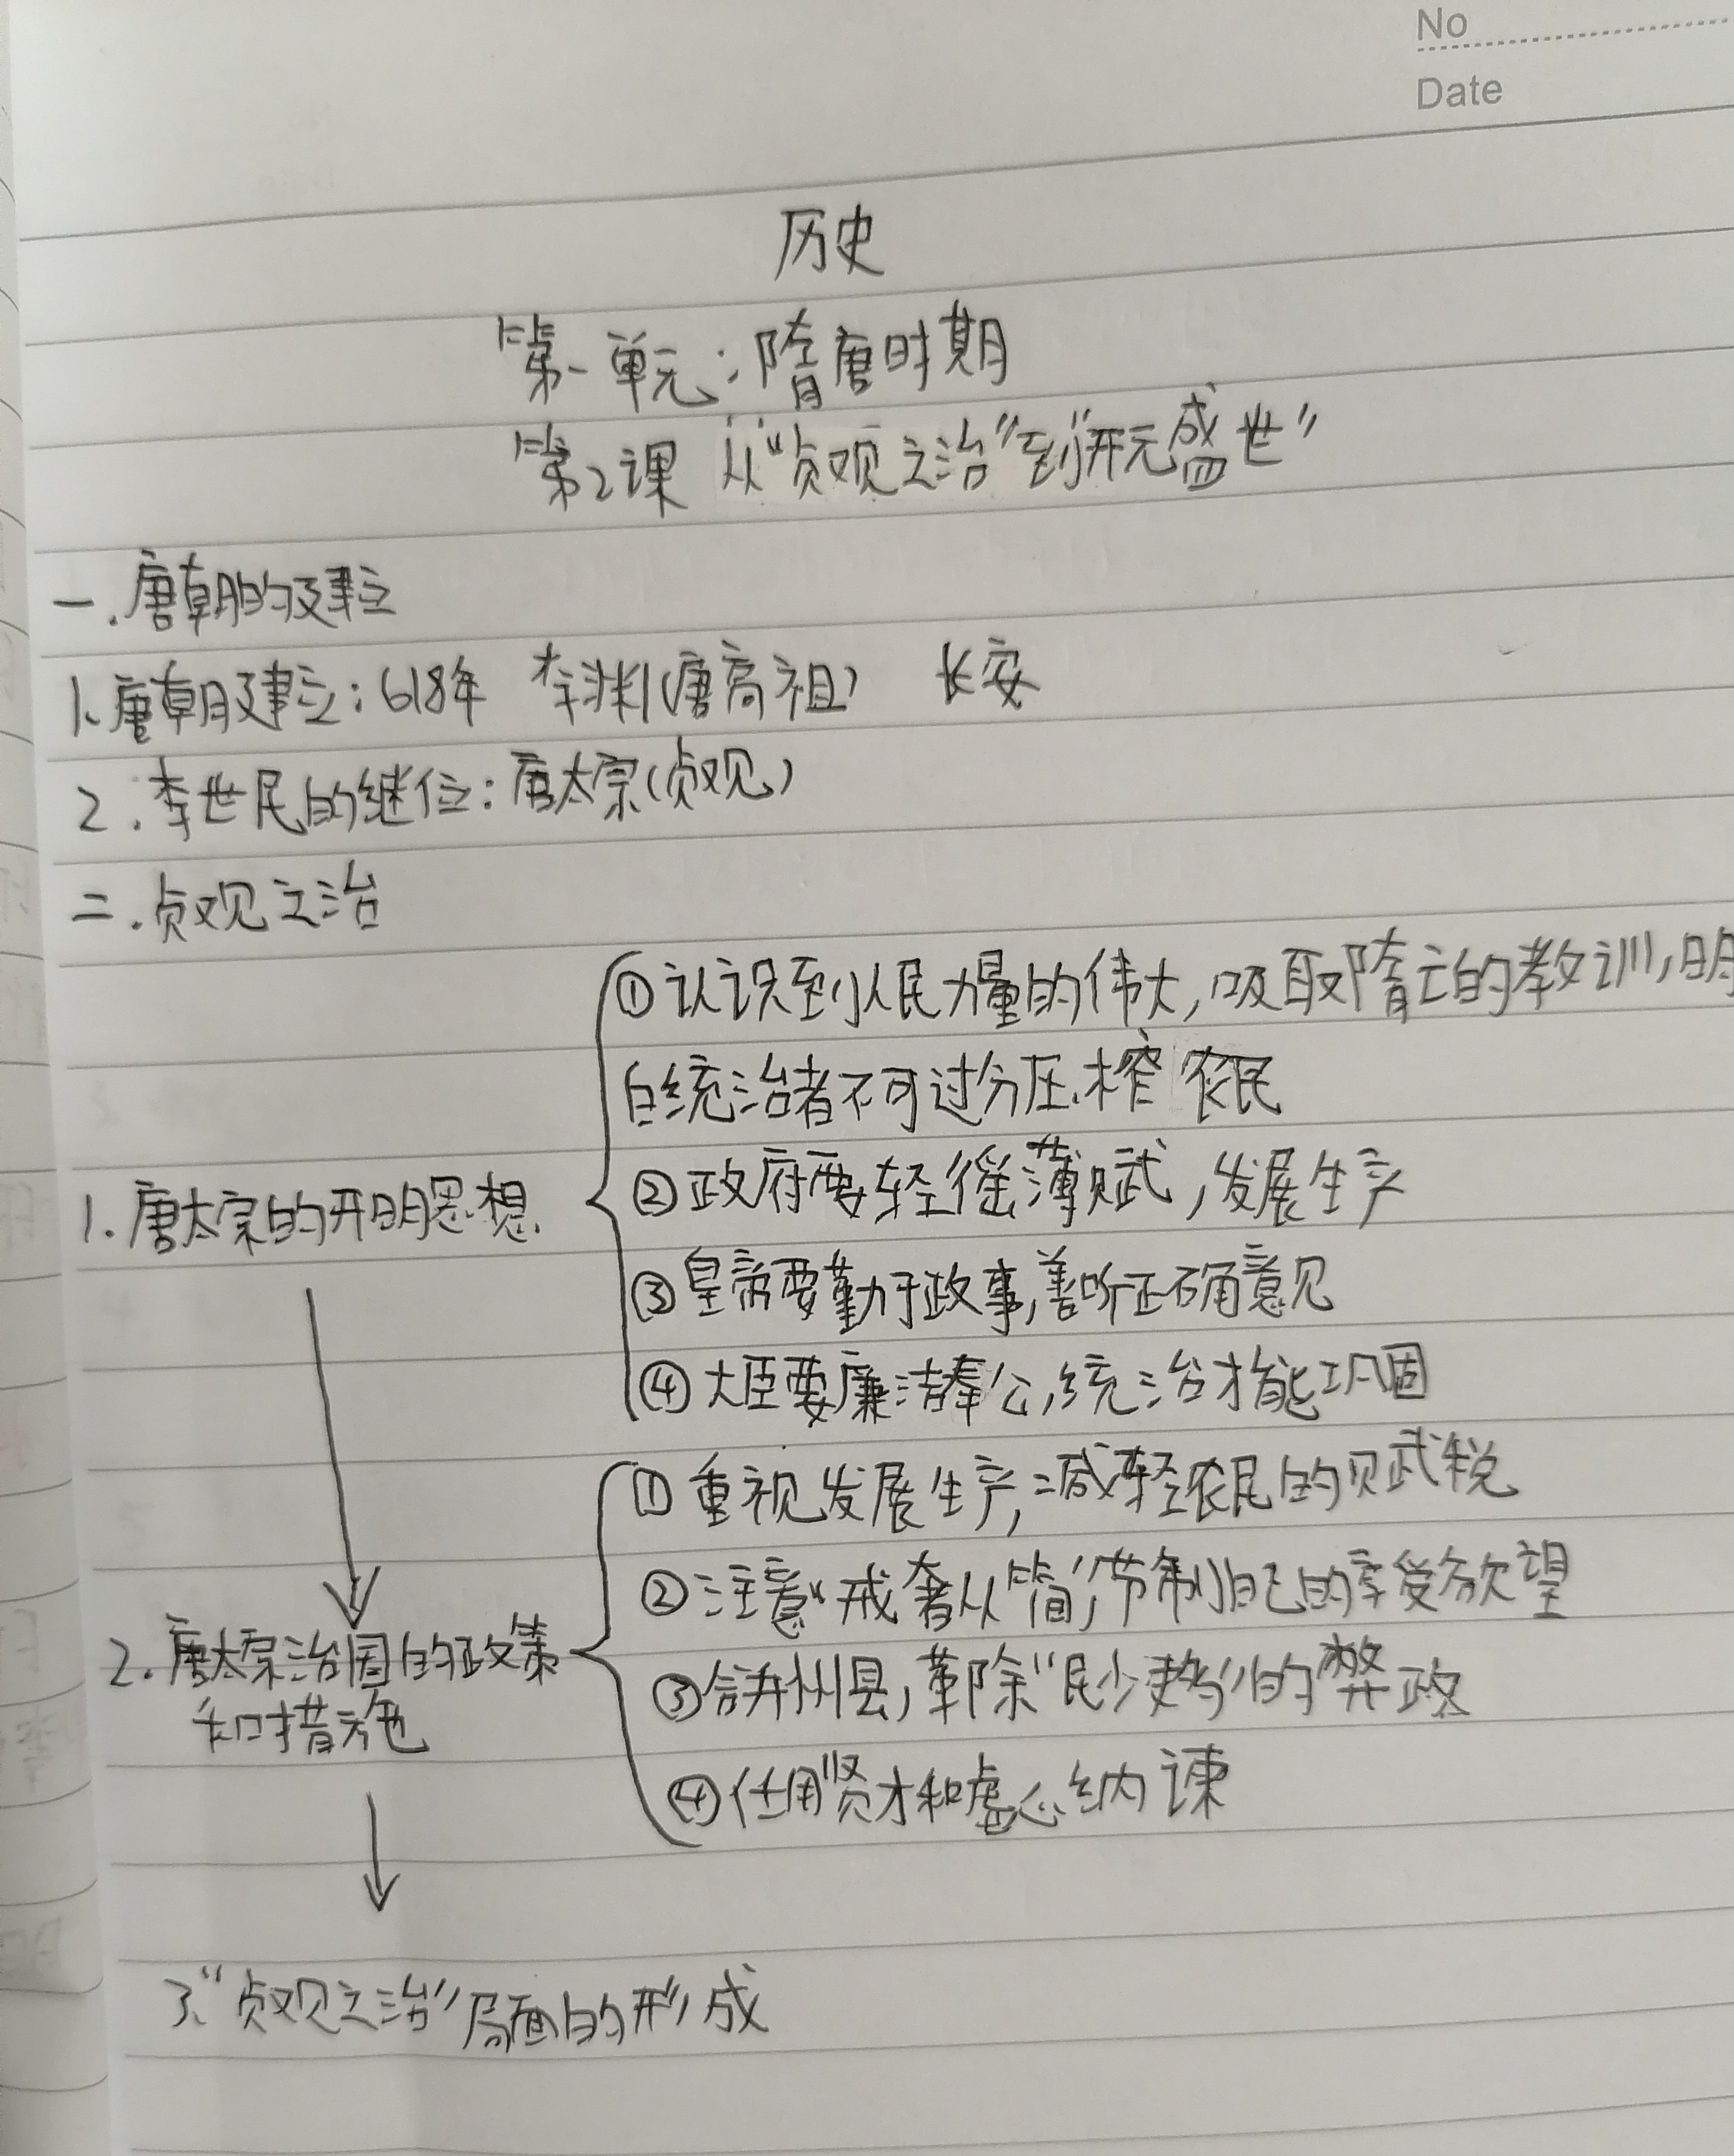 No
Date
历史
第一单元:隋唐时期
第2课 从“贞观之治”到“开元盛世”
一.唐朝的建立
1.唐朝建立:618年 李渊(唐高祖) 长安
2.李世民的继位:唐太宗(贞观)
二.贞观之治
①认识到人民力量的伟大,吸取隋亡的教训,明
白统治者不可过分压榨农民
②政府要轻徭薄赋,发展生产
1.唐太宗的开明思想
③皇帝要勤于政事,善听正确意见
④大臣要廉洁奉公,统治才能巩固
①重视发展生产,减轻农民的赋税
②注意“戒奢从简”,节制自己的享受欲望
2.唐太宗治国的政策
和措施
③合并州县,革除“民少吏多”的弊政
④任用贤才和虚心纳谏
3.“贞观之治”局面的形成